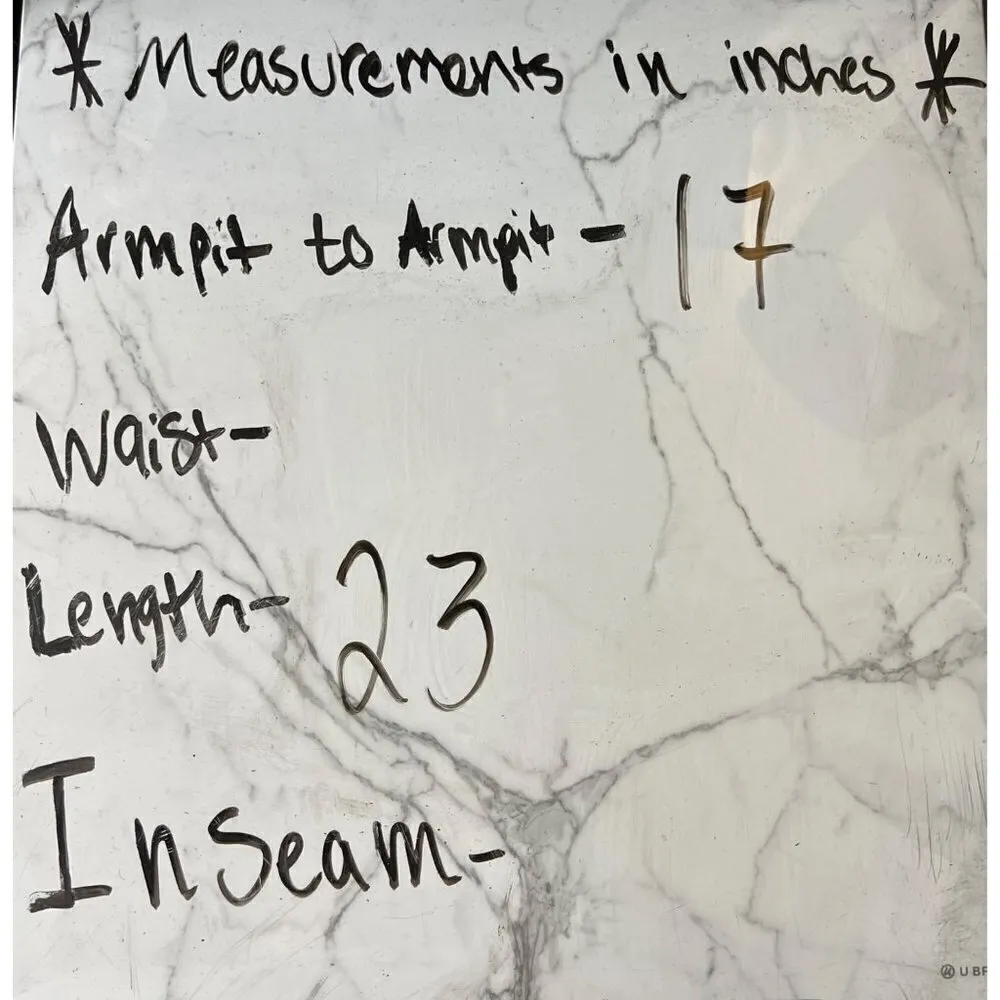 * Measurements in inches *
Armpit to Armpit - 17
Waist-
Length- 23
Inseam-
U BF